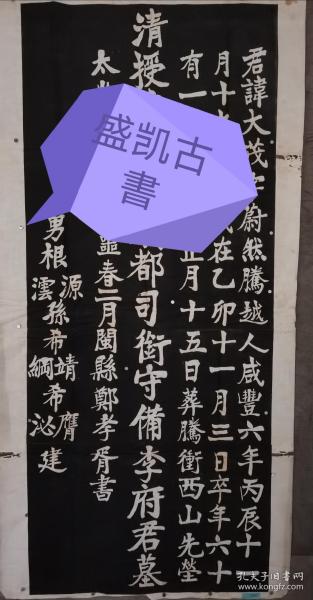 君諱大茂字蔚然騰越人咸豐六年丙辰十
月十在乙卯十一月三日卒年六十
有一正月十五日葬騰衝西山先塋
清授都司銜守備李府君墓
太噩春二月閩縣鄭孝胥書
男根源
澐孫希靖希膺
綱泌建
盛凯古
書
孔夫子旧书网
www.kongfz.com